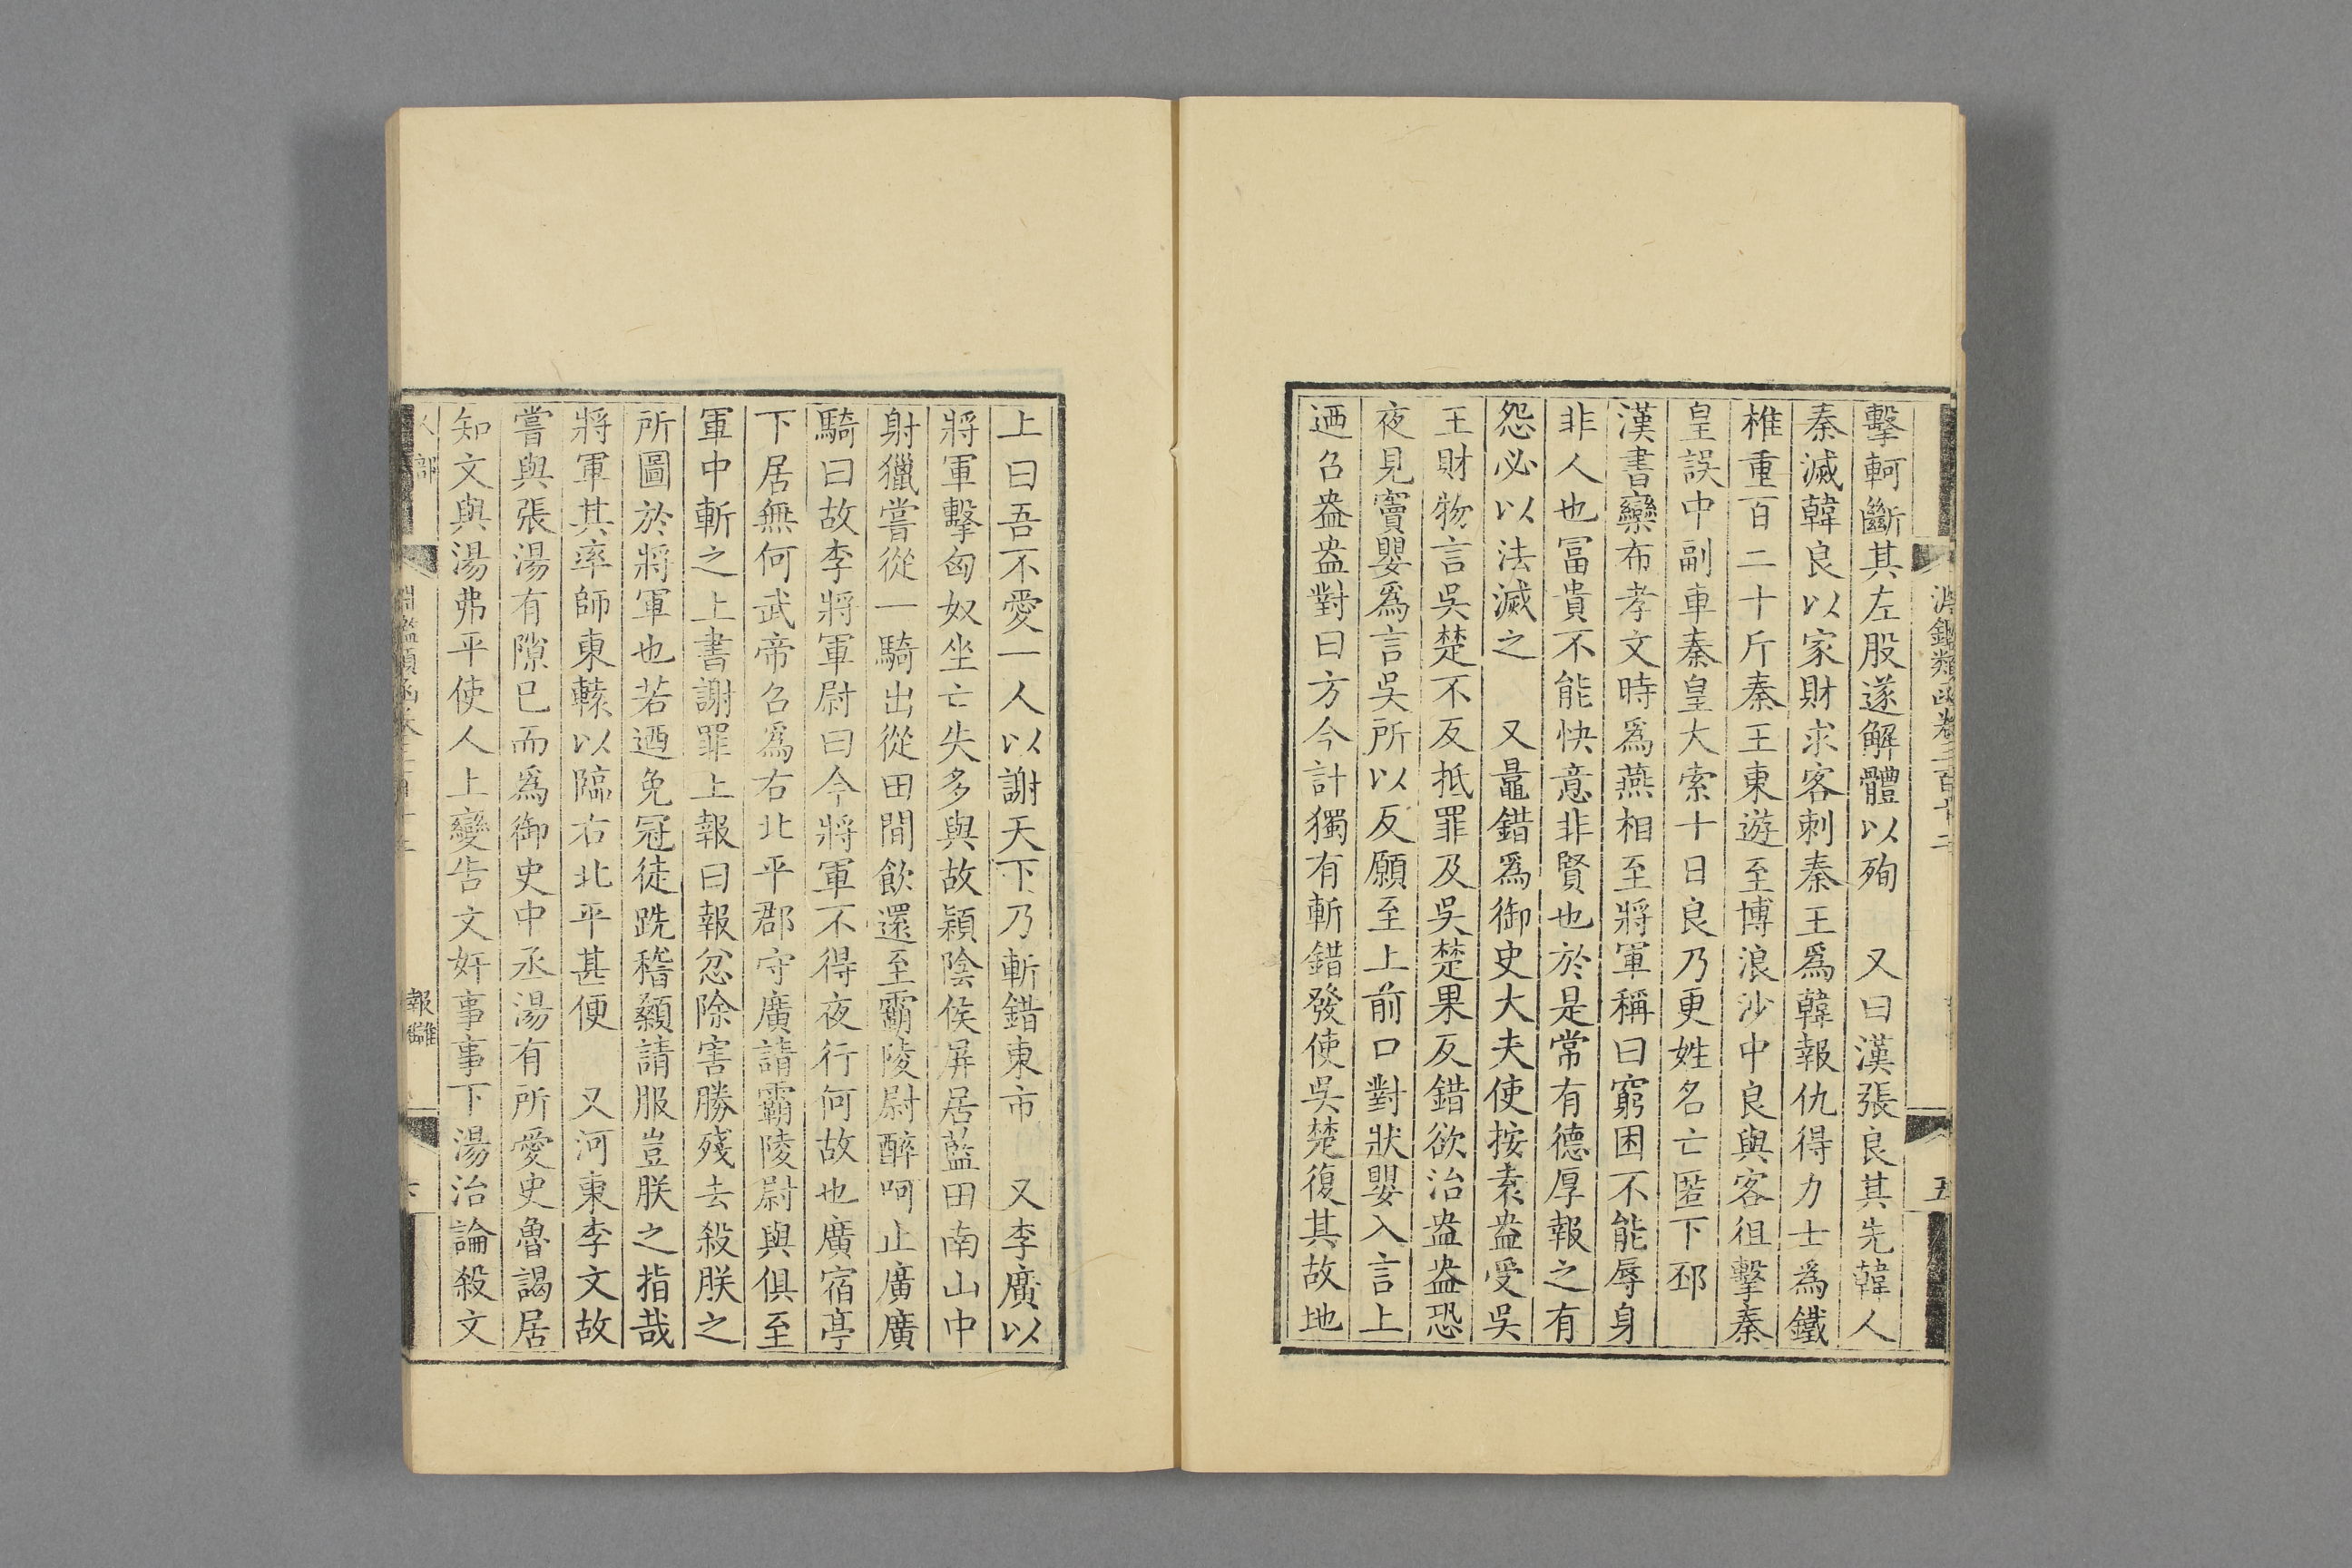 淵鑑類函卷三百十二
五
擊軻斷其左股遂解體以殉　又曰漢張良其先韓人
秦滅韓良以家財求客刺秦王爲韓報仇得力士爲鐵
椎重百二十斤秦王東遊至博浪沙中良與客徂擊秦
皇誤中副車秦皇大索十日良乃更姓名亡匿下邳
漢書欒布孝文時爲燕相至將軍稱曰窮困不能辱身
非人也冨貴不能快意非賢也於是常有德厚報之有
怨必以法滅之　又鼂錯爲御史大夫使按袁盎受吳
王財物言吳楚不反抵罪及吳楚果反錯欲治盎盎恐
夜見竇嬰爲言吳所以反願至上前口對狀嬰入言上
迺召盎盎對曰方今計獨有斬錯發使吳楚復其故地
上曰吾不愛一人以謝天下乃斬錯東市　又李廣以
將軍擊匈奴坐亡失多與故穎陰侯屏居藍田南山中
射獵嘗從一騎出從田間飲還至霸陵尉醉呵止廣廣
騎曰故李將軍尉曰今將軍不得夜行何故也廣宿亭
下居無何武帝召爲右北平郡守廣請霸陵尉與俱至
軍中斬之上書謝罪上報曰報忿除害勝殘去殺朕之
所圖於將軍也若迺免冠徒跣稽顙請服豈朕之指哉
將軍其率師東轅以臨右北平甚便　又河東李文故
嘗與張湯有隙已而爲御史中丞湯有所愛史魯謁居
知文與湯弗平使人上變告文奸事事下湯治論殺文
人部
報讎